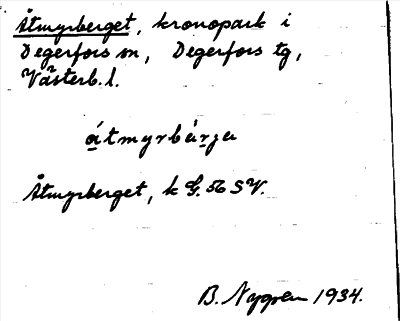 Åtmyrberget, kronopark i
Degerfors sn, Degerfors tg,
Västerb. l.
åtmyrbärja
Åtmyrberget, k G. 56 SV.
B. Nygren 1934.